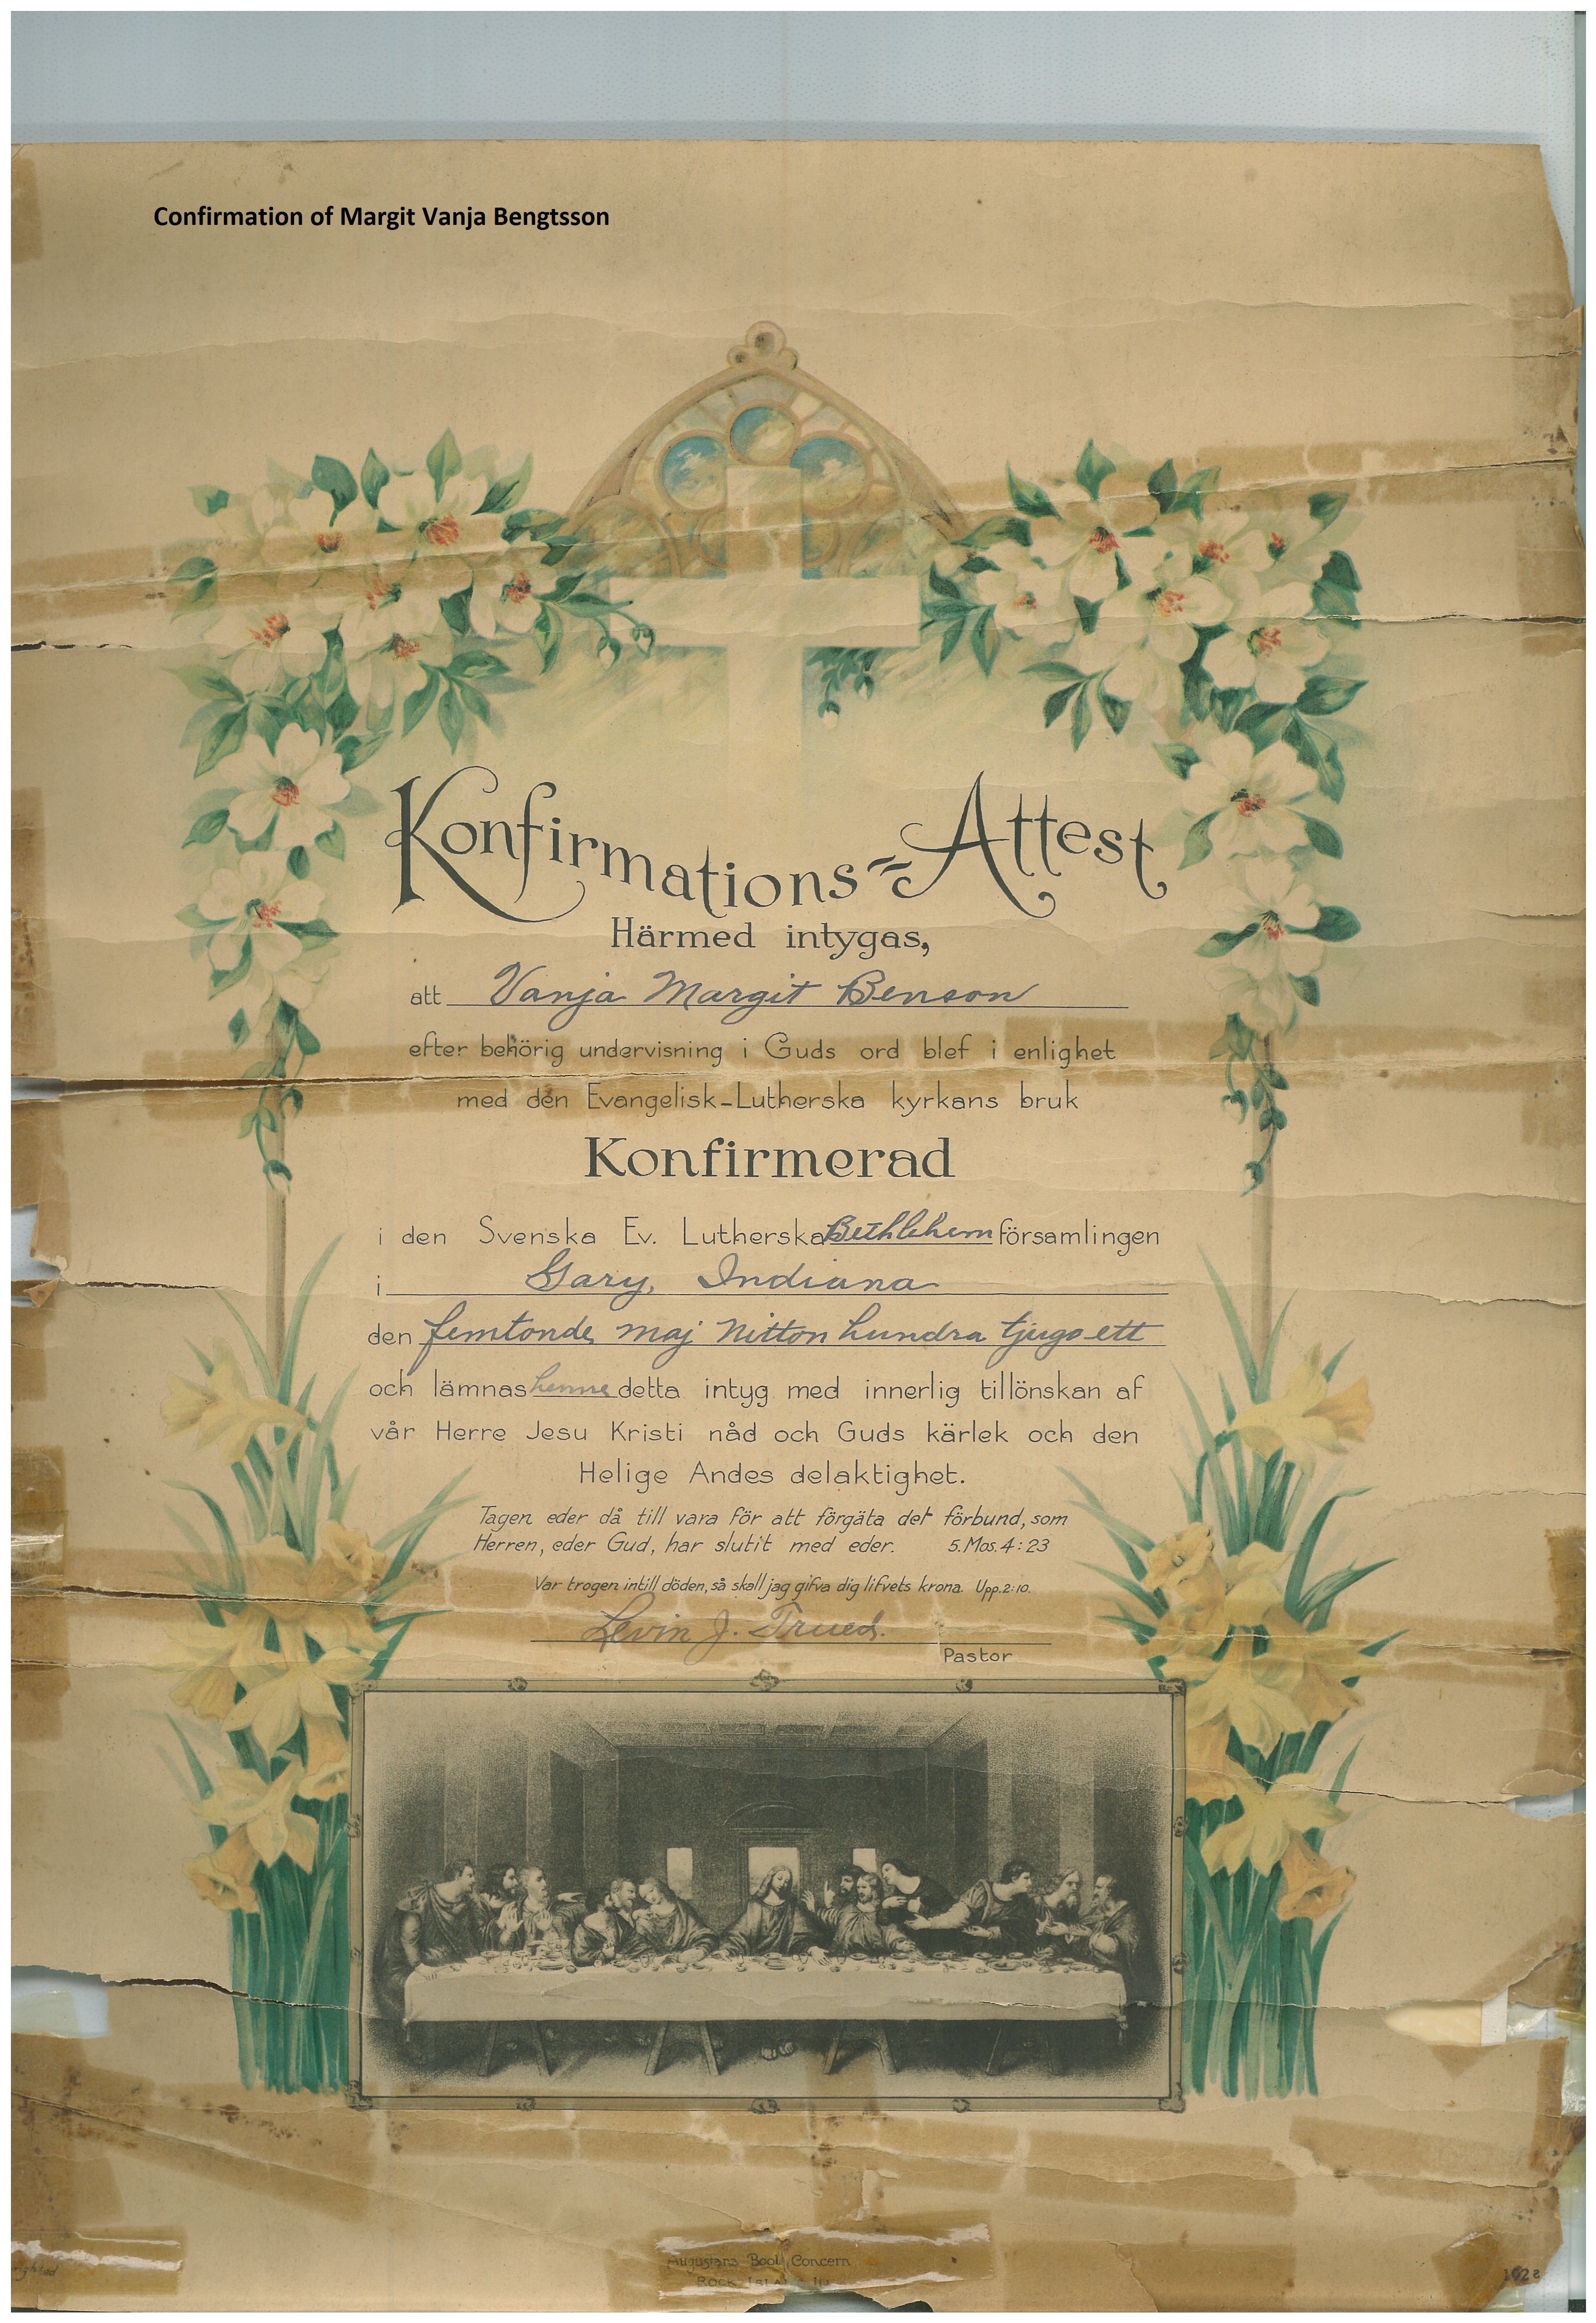 Confirmation of Margit Vanja Bengtsson
Konfirmations-Attest
Härmed intygas,
att Vanja Margit Benson
efter behörig undervisning i Guds ord blef i enlighet
med den Evangelisk-Lutherska kyrkans bruk
Konfirmerad
i den Svenska Ev. Lutherska Bethlehem församlingen
i Gary, Indiana
den femtonde maj Nitton hundra tjugo ett
och lämnas henne detta intyg med innerlig tillönskan af
vår Herre Jesu Kristi nåd och Guds kärlek och den
Helige Andes delaktighet.
Tagen eder då till vara för att förgäta det förbund, som
Herren, eder Gud, har slutit med eder. 5. Mos. 4:23
Var trogen intill döden, så skall jag gifva dig lifvets krona. Upp. 2:10.
Levin J. Trued.
Pastor
Augustana Book Concern
Rock Island Ill.